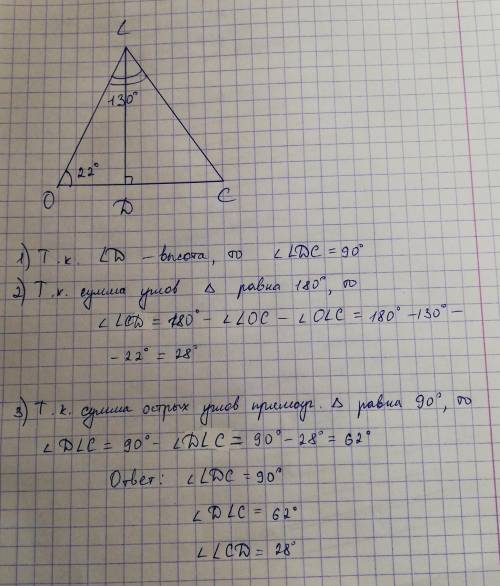 L
130°
22°
O
D
C
1) Т.к. LD – высота, то ∠LDC = 90°
2) Т.к. сумма углов Δ равна 180°, то
∠LCD = 180° - ∠LOC - ∠OLC = 180° - 130° -
- 22° = 28°
3) Т.к. сумма острых углов прямоуг. Δ равна 90°, то
∠DLC = 90° - ∠DLC = 90° - 28° = 62°
Ответ: ∠LDC = 90°
∠DLC = 62°
∠LCD = 28°